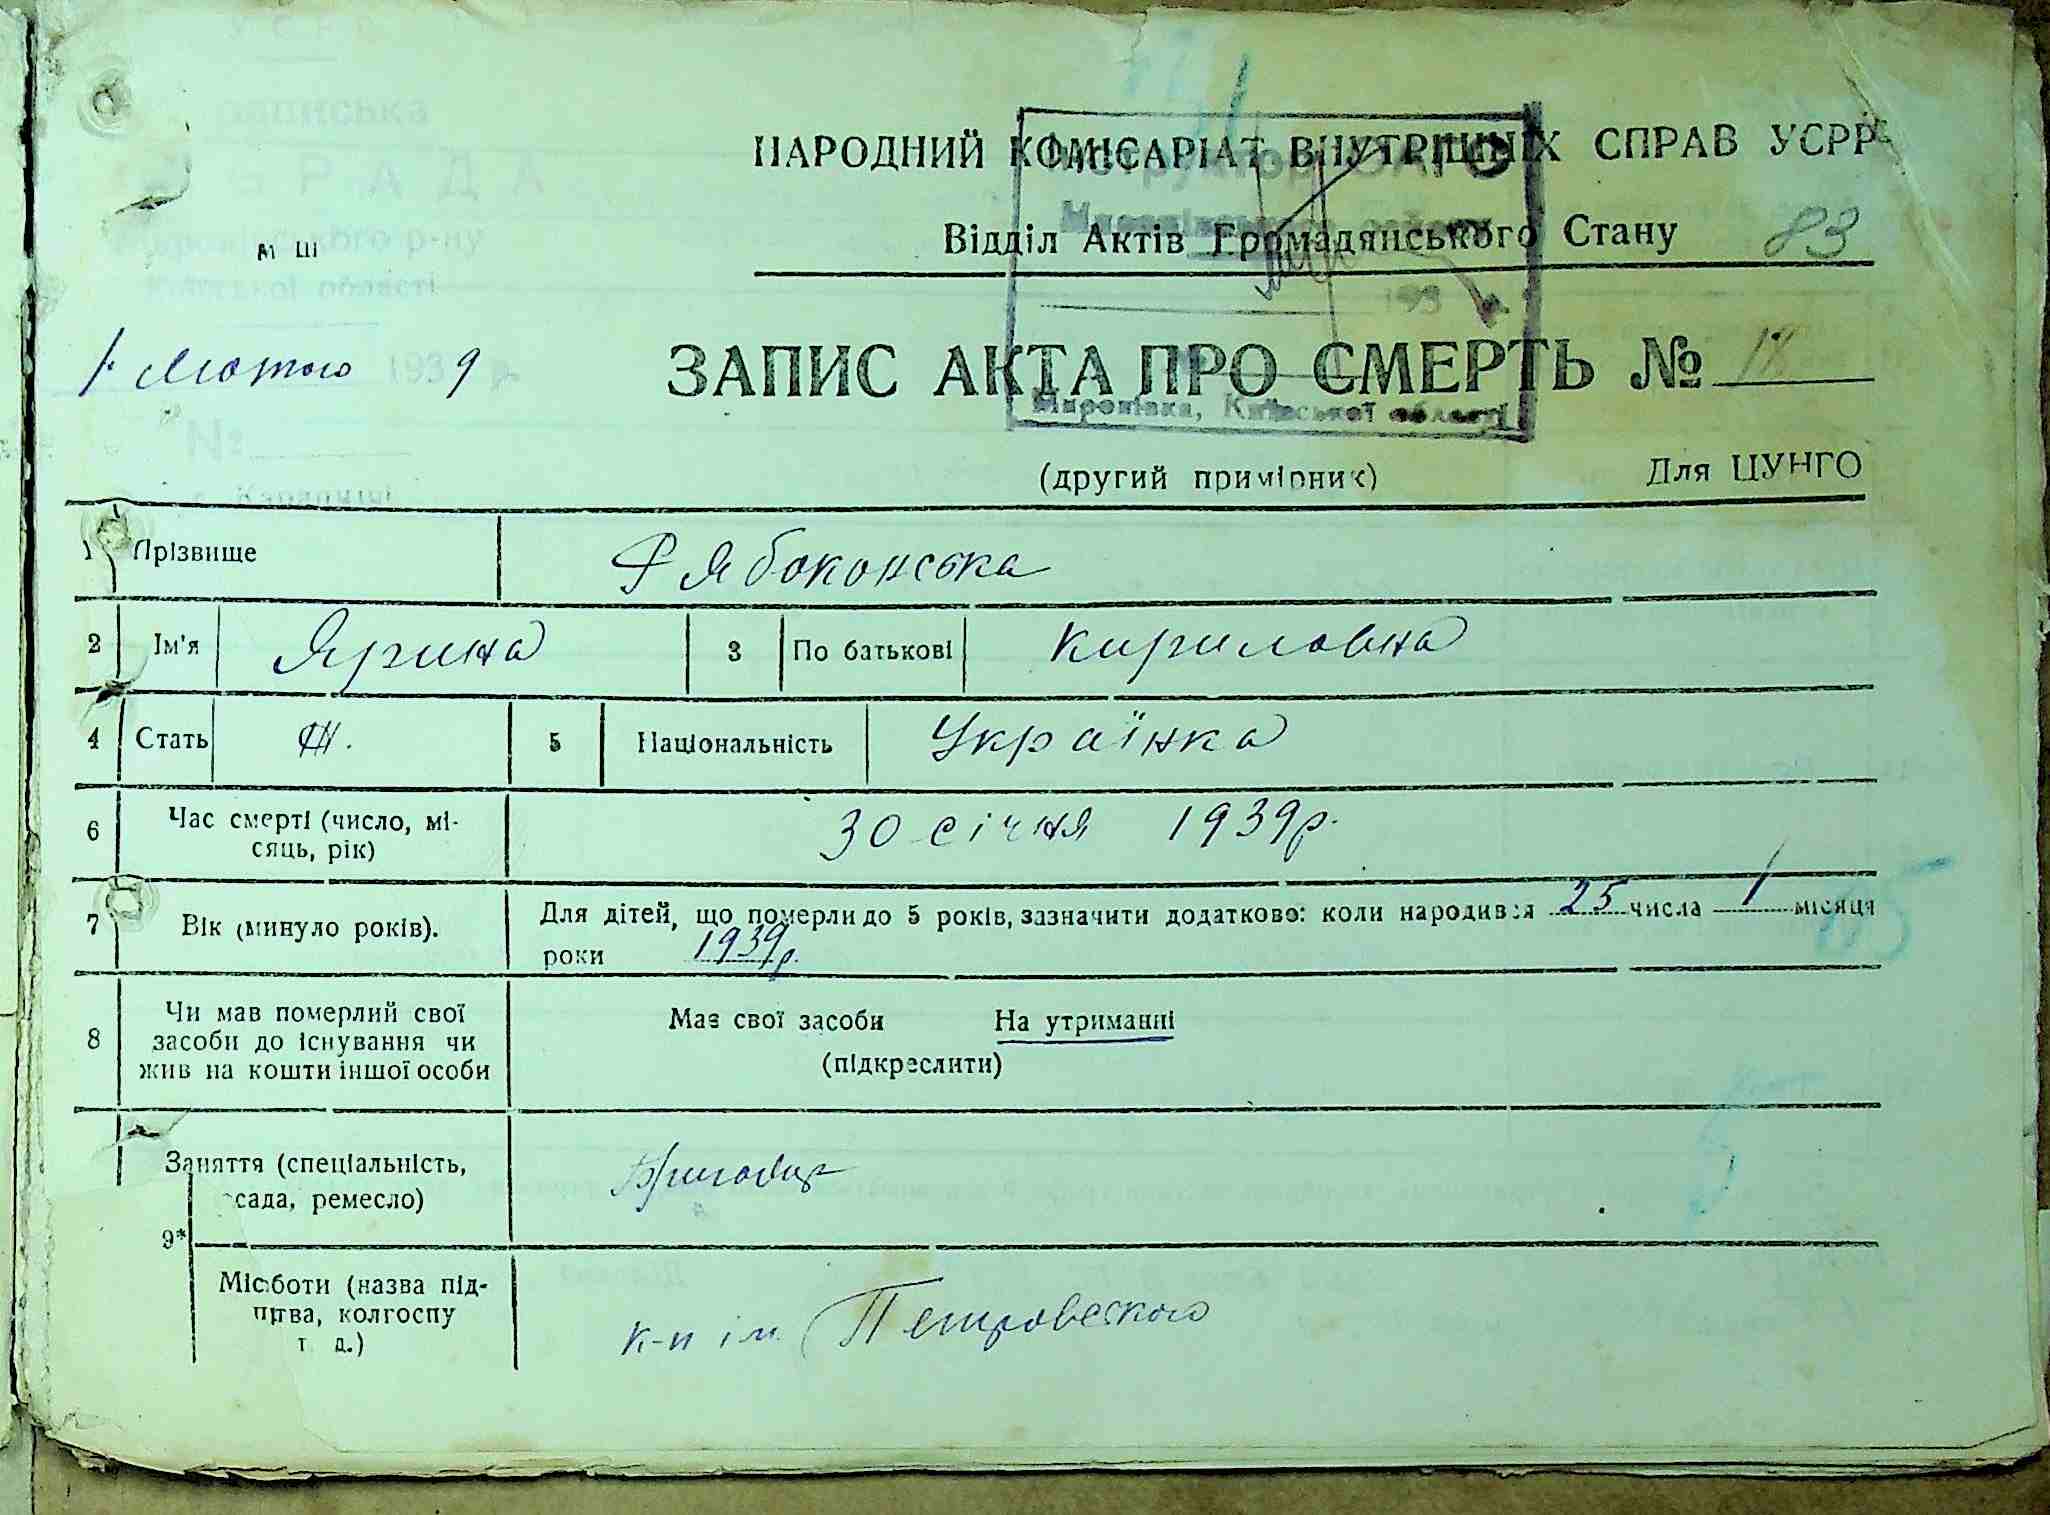 НАРОДНИЙ КОМІСАРІАТ ВНУТРІШНІХ СПРАВ УСРР
Відділ Актів Громадянського Стану 83
м ші
1. Лютого 1939 р.
ЗАПИС АКТА ПРО СМЕРТЬ № 18
Миронівка, Київської області
(другий примірник) Для ЦУНГО
1 Прізвище Рябоконська
2 Ім'я Ярина 3 По батькові Кириловна
4 Стать Ж. 5 Національність Українка
6 Час смерті (число, мі-
сяць, рік) 30 січня 1939р.
7 Вік (минуло років). Для дітей, що померли до 5 років, зазначити додатково: коли народився 25 числа 1 місяця
роки 1939р.
8 Чи мав померлий свої
засоби до існування чи
жив на кошти іншої особи
Має свої засоби На утриманні
(підкреслити)
Заняття (спеціальність,
сада, ремесло)
9*
Місботи (назва під-
птва, колгоспу
т. д.)
к-п ім Петровського